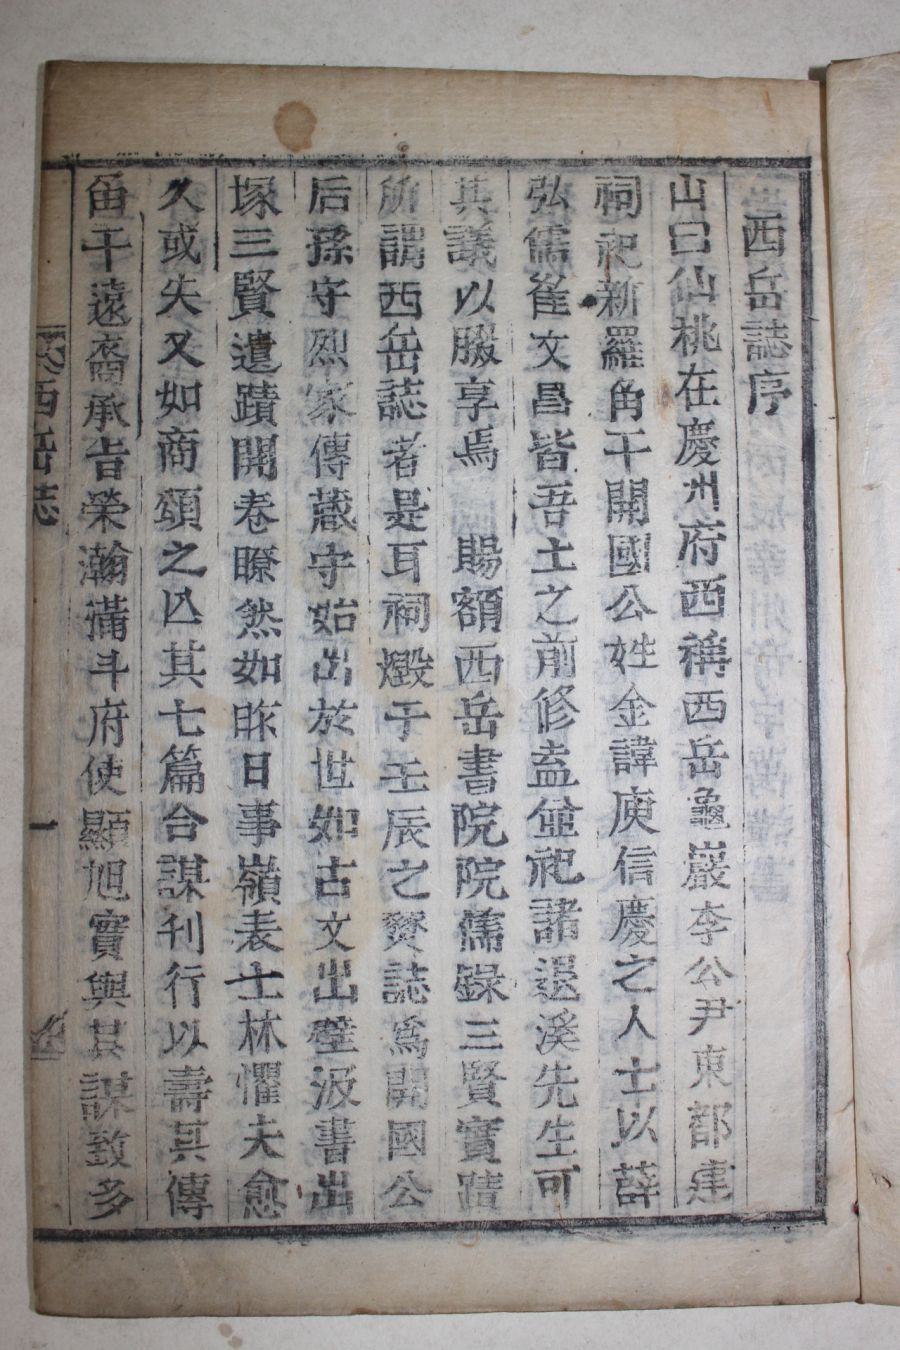 西岳誌序
山曰仙桃在慶州府西稱西岳龜巖李公尹東都建
祠祀新羅角干開國公姓金諱庾信慶之人士以薛
弘儒崔文昌皆吾土之前修盍並祀諸退溪先生可
其議以腏享焉 賜額西岳書院院儒錄三賢實蹟
所謂西岳誌者是耳祠燬于壬辰之燹誌爲開國公
后孫守烈家傳藏守始出於世如古文出壁汲書出
塚三賢遺蹟開卷瞭然如昨日事嶺表士林懼夫愈
久或失又如商頌之亡其七篇合謀刊行以壽其傳
角干遠裔承旨榮瀚蒲斗府使顯旭實與其謀致多
西岳誌
一